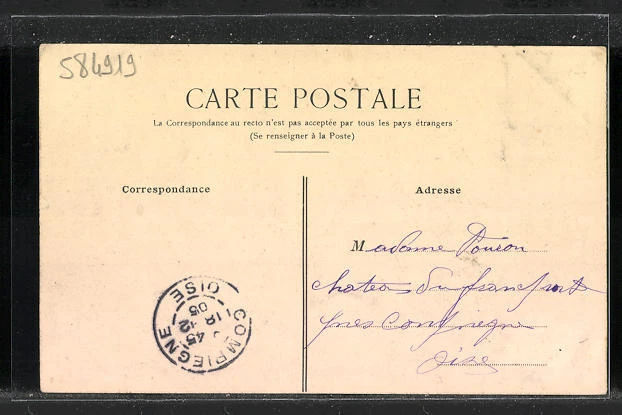 584919
CARTE POSTALE
La Correspondance au recto n'est pas acceptée par tous les pays étrangers
(Se renseigner à la Poste)
Correspondance
Adresse
Madame
chateau du francport
pres Compiegne
Oise
COMPIEGNE OISE
45
18 -12
05